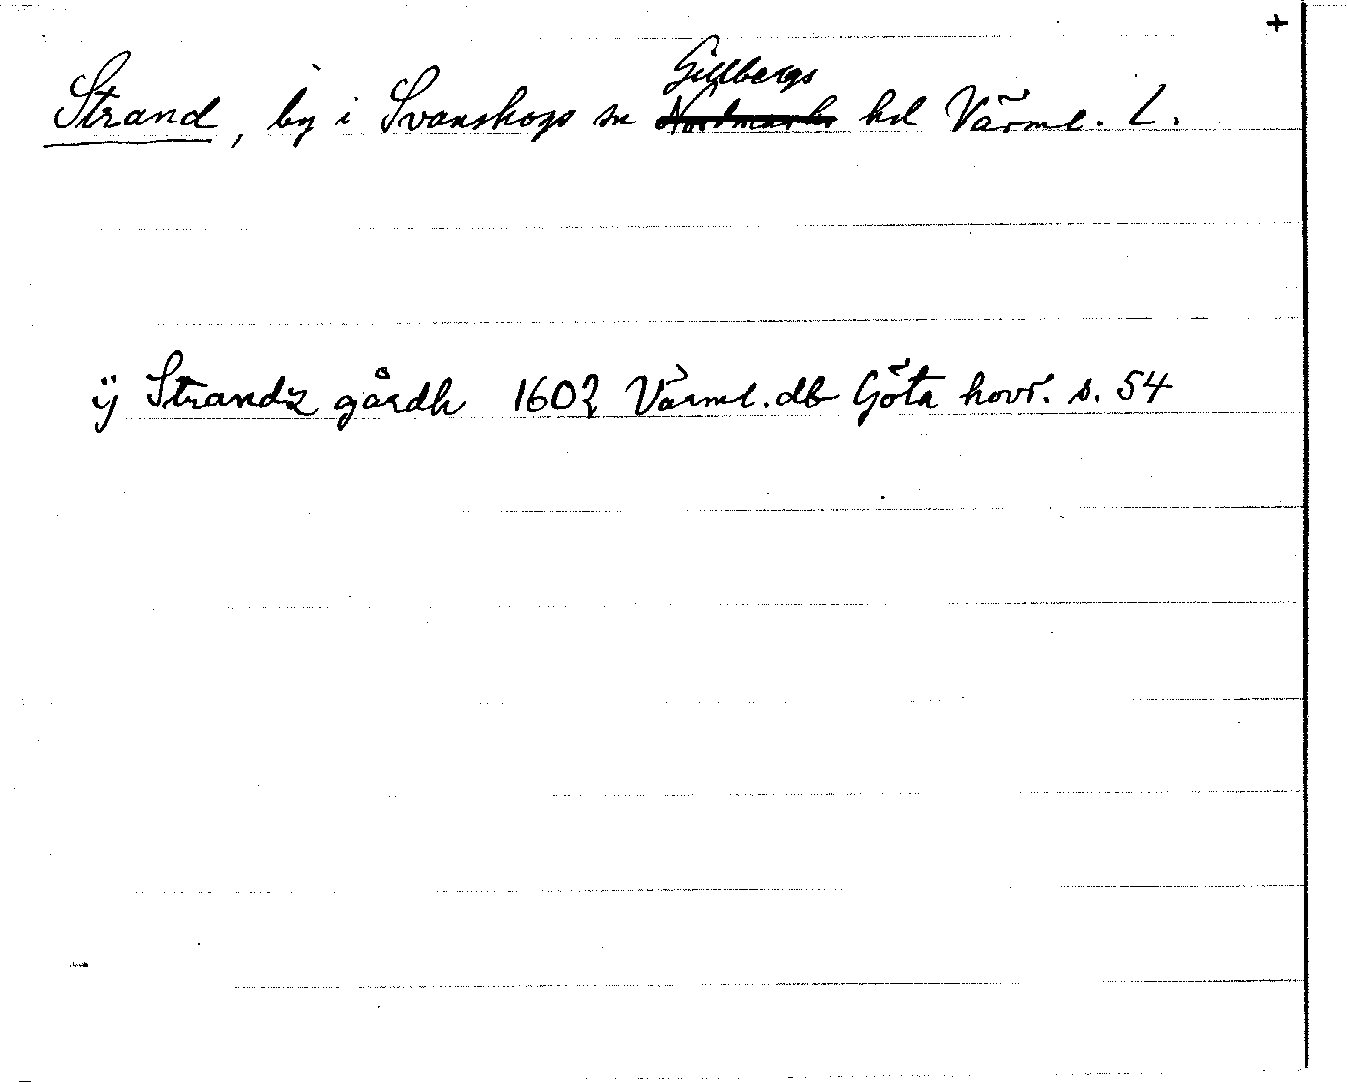 +
Strand, by i Svanskogs sn Gillbergs hd Värml. L.
ÿ Strandz gårdh 1602 Värml. db Göta hovr. s. 54